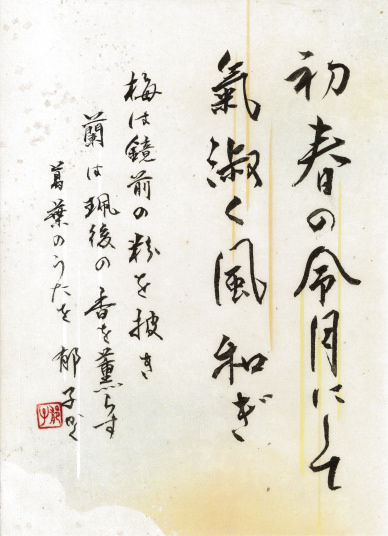 初春の令月にして
氣淑く風和ぎ
梅は鏡前の粉を披き
蘭は珮後の香を薫らす
葛葉のうたを 郁子かく